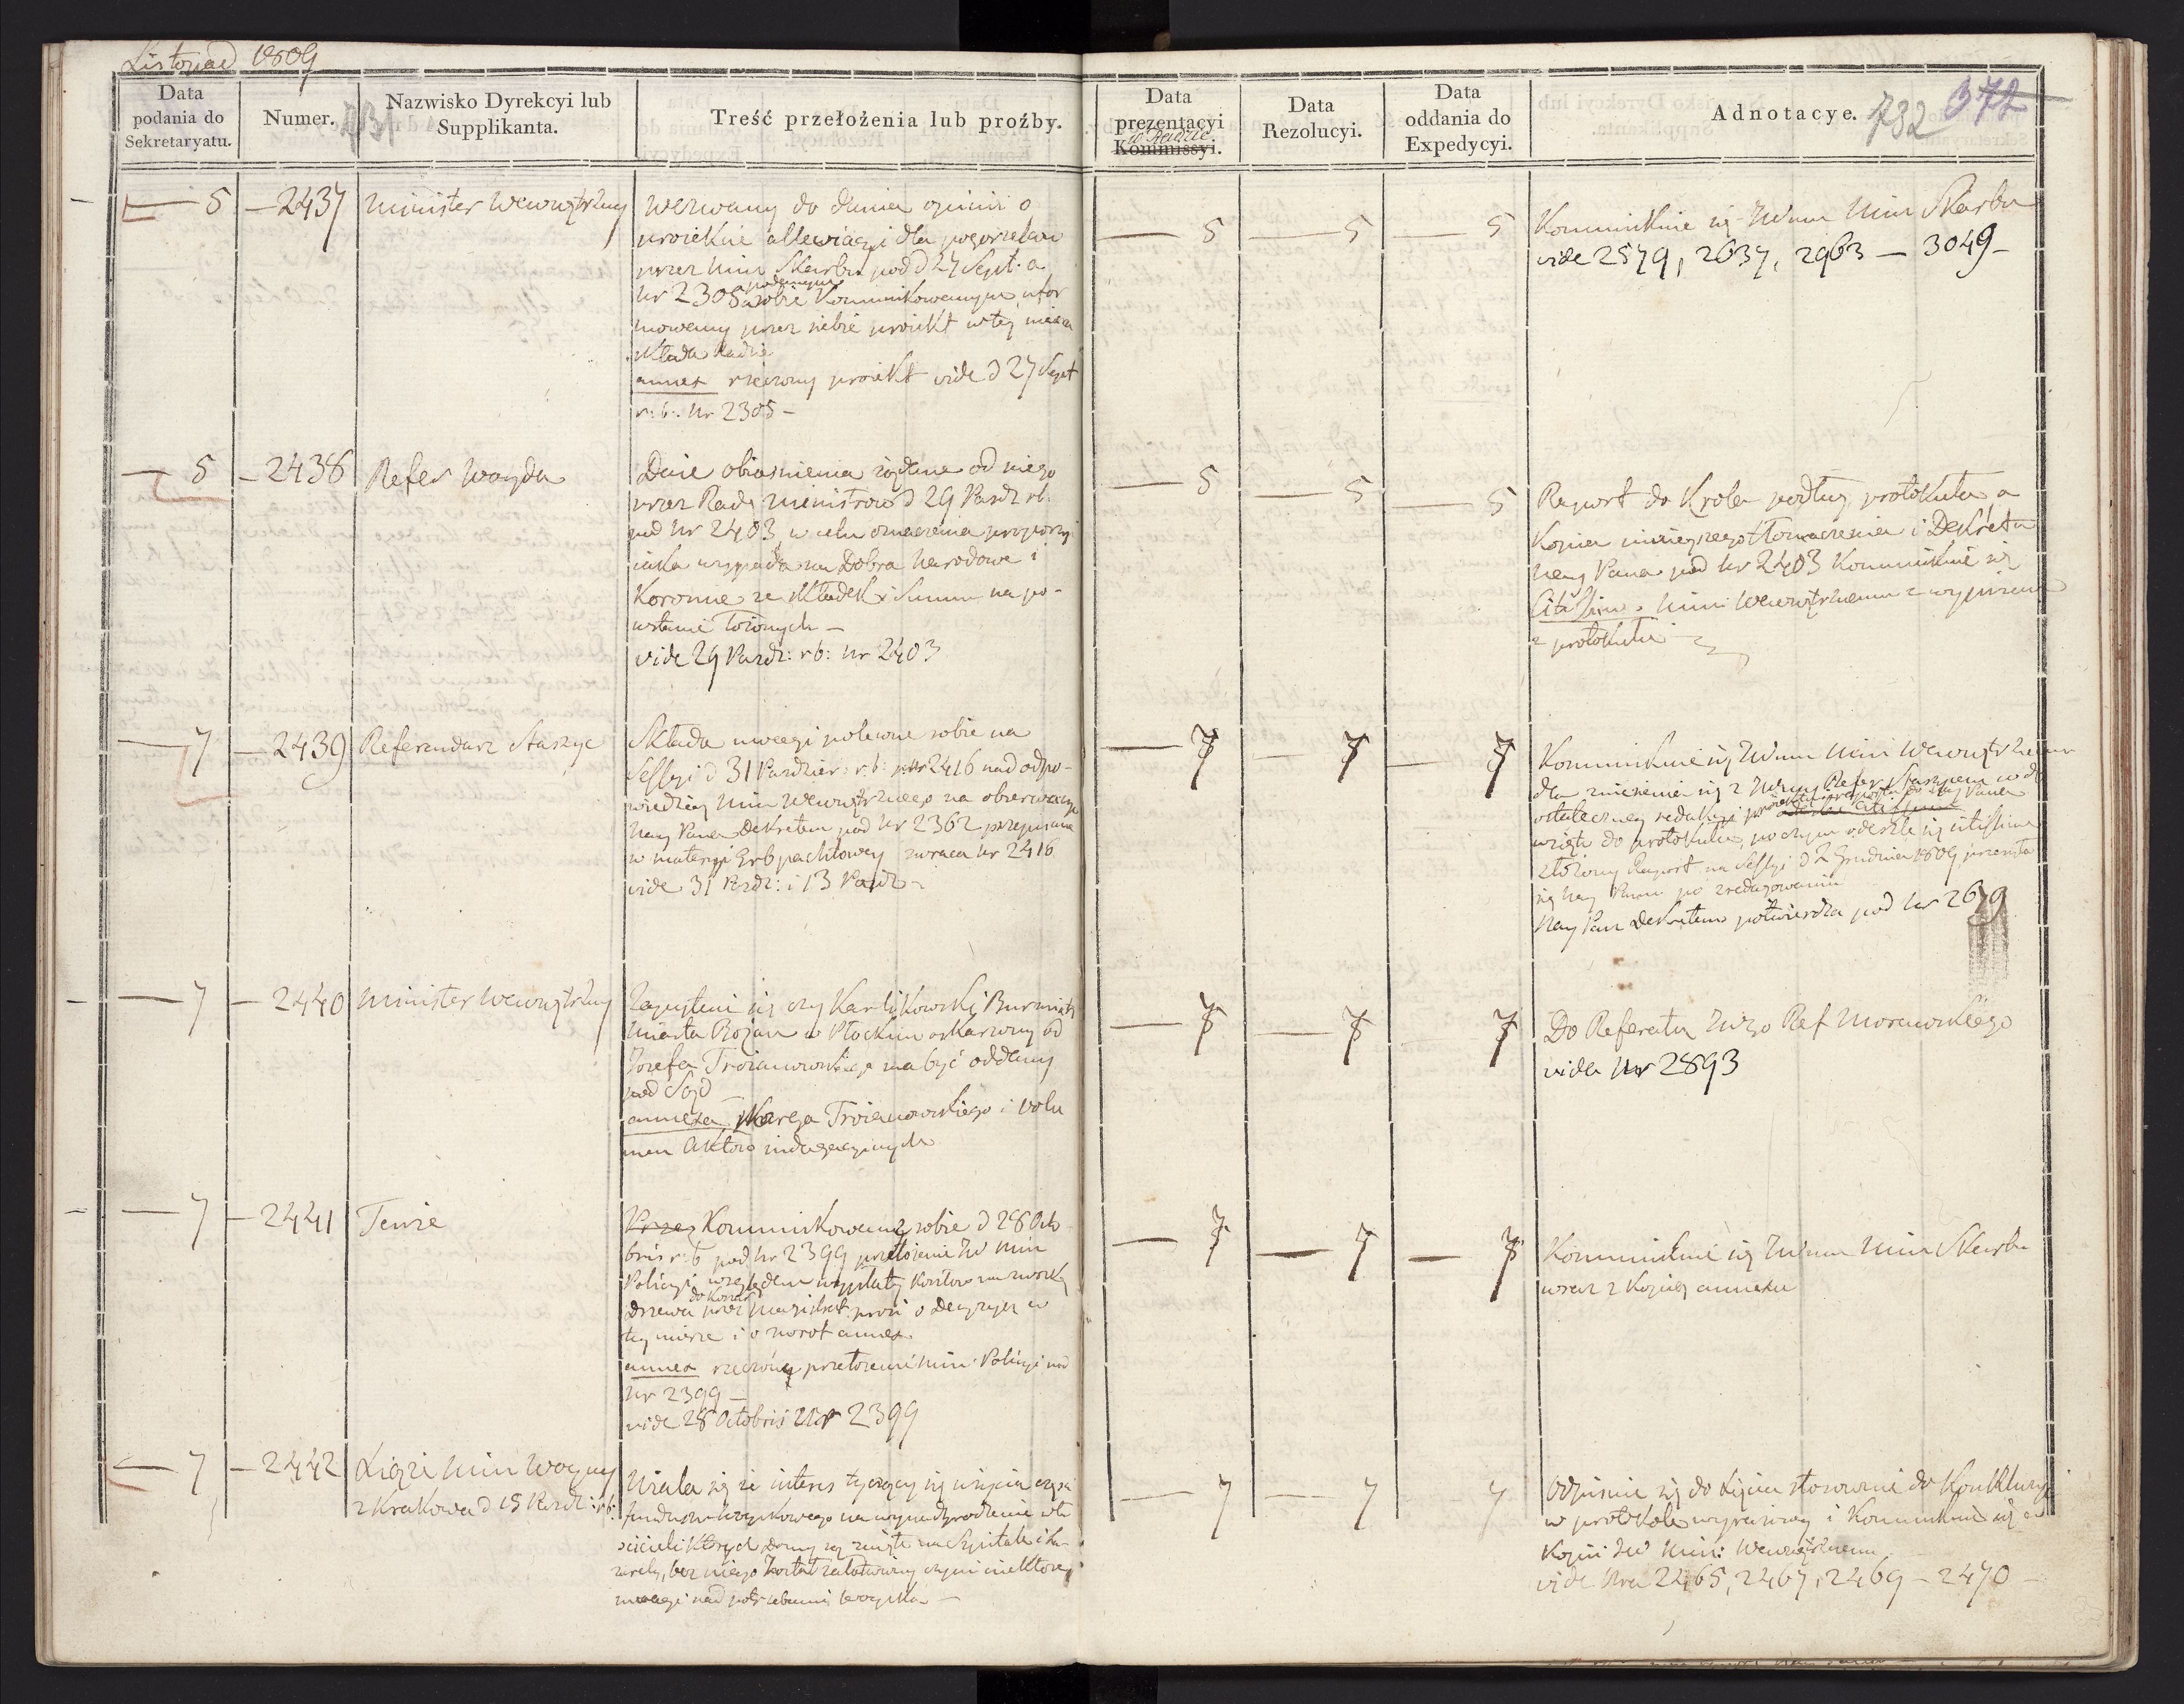 Listopad 1809
Data podania do Sekretaryatu.
Numer.
731
Nazwisko Dyrekcyi lub Supplikanta.
Treść przełożenia lub proźby.
Data prezentacyi w Radzie Kommissyi.
Data Rezolucyi.
Data oddania do Expedycyi.
Adnotacye.
732 372
— 5 — 2437 Minister Wewnętrzny
Wezwany do dania opinii o
proiekcie allewiacyi dla pogorzelców
przez Min Skarbu pod d 27 Sept: a
Nr 2305 podanym a sobie kommunikowanym, ufor
mowany przez siebie proiekt w tej mierze
składa Radzie
annex rzeczony proiekt vide d 27 Sept
r: b: Nr 2305 —
— 5 — 5 — 5
Kommunikuie się JWmu Min Skarbu
vide 2579, 2637, 2963 — 3049 —
— 5 — 2438 Refer Woyda
Daie obiasnienia żądane od niego
przez Radę Ministrów d 29 Pazdz rb.
pod Nr 2403, w celu oznaczenia proporcyi
iaka wypada na Dobra Narodowe i
Koronne ze składek i Summ na po-
wstanie łożonych —
vide 29 Pazdz: rb: Nr 2403
— 5 — 5 — 5
Raport do Króla podług protokułu, a
Kopia ninieyszego tłomaczenia i Dekretu
Nay Pana pod Nr 2403 Kommunikuie się
Citissime Mini Wewnętrznemu z wypisem
z protokułu
— 7 — 2439 Referendarz Staszyc
Składa uwagi polecone sobie na
Sessyi d 31 Pazdzier: r: b: Nr 2416 nad odpo-
wiedzią Min Wewnętrznego na obserwacye
Nay Pana Dekretem pod Nr 2362 przepisane
w materyi Erbpachtowey zwraca Nr 2416
vide 31 Pazdz: i 13 Pazdz —
— 7 — 7 — 7
Kommunikuie się JWmu Mini Wewnętrznemu
dla zniesienia się z JWnym Refer Staszycem w do
ostateczney redakcyi proiektu i raportu do Nay Pana
wzięte do protokułu, po czym odeszle się citissime
złożony Raport na Sessyi d 2 Grudnia 1809 przesyła
się Nay Panu po zredagowaniu
Nay Pan Dekretem potwierdza pod Nr 2679
— 7 — 2440 Minister Wewnętrzny
Zapytuie się czy Karlikowski Burmistrz
Miasta Rożan w Płockim oskarżony od
Jozefa Troianowskiego ma być oddany
pod Sąd
annexa Skarga Troianowskiego i Volu
men Aktów indagacyinych
— 7 — 7 — 7
Do Referatu JWgo Ref Morawskiego
vide Nr 2893
— 7 — 2441 Tenże
Przez Kommunikowane sobie d 28 Octo
bris r: b pod Nr 2399 przełożenie JW Min
Policyi względem wypłaty kosztów na zwózkę
Drzewa do Koszar przez Magistrat prosi o Decyzyą w
tey mierze i o zwrot annex
annex rzeczone przełożenie Min: Policyi pod
Nr 2399 —
vide 28 Octobris Nr 2399
— 7 — 7 — 7
Kommunikuie się JWmu Min Skarbu
wraz z Kopią annexu
— 7 — 2442 Xiąże Min Woyny
z Krakowa d 15 Pazdz: r b:
Użala się że interes tyczący się użycia części
funduszu woyskowego na wynadgrodzenie wła
ścicieli których Domy są zaięte na Szpitale i ko
szary, bez niego został załatwiony czyni niektore
uwagi nad potrzebami woyska —
— 7 — 7 — 7
Odpisuie się do Xięcia stosownie do Konkluzyi
w protokole wyrażoney i Kommunikuie się w
Kopii JW Mini: Wewnętrznemu
vide Nra 2465, 2467, 2469 — 2470 —